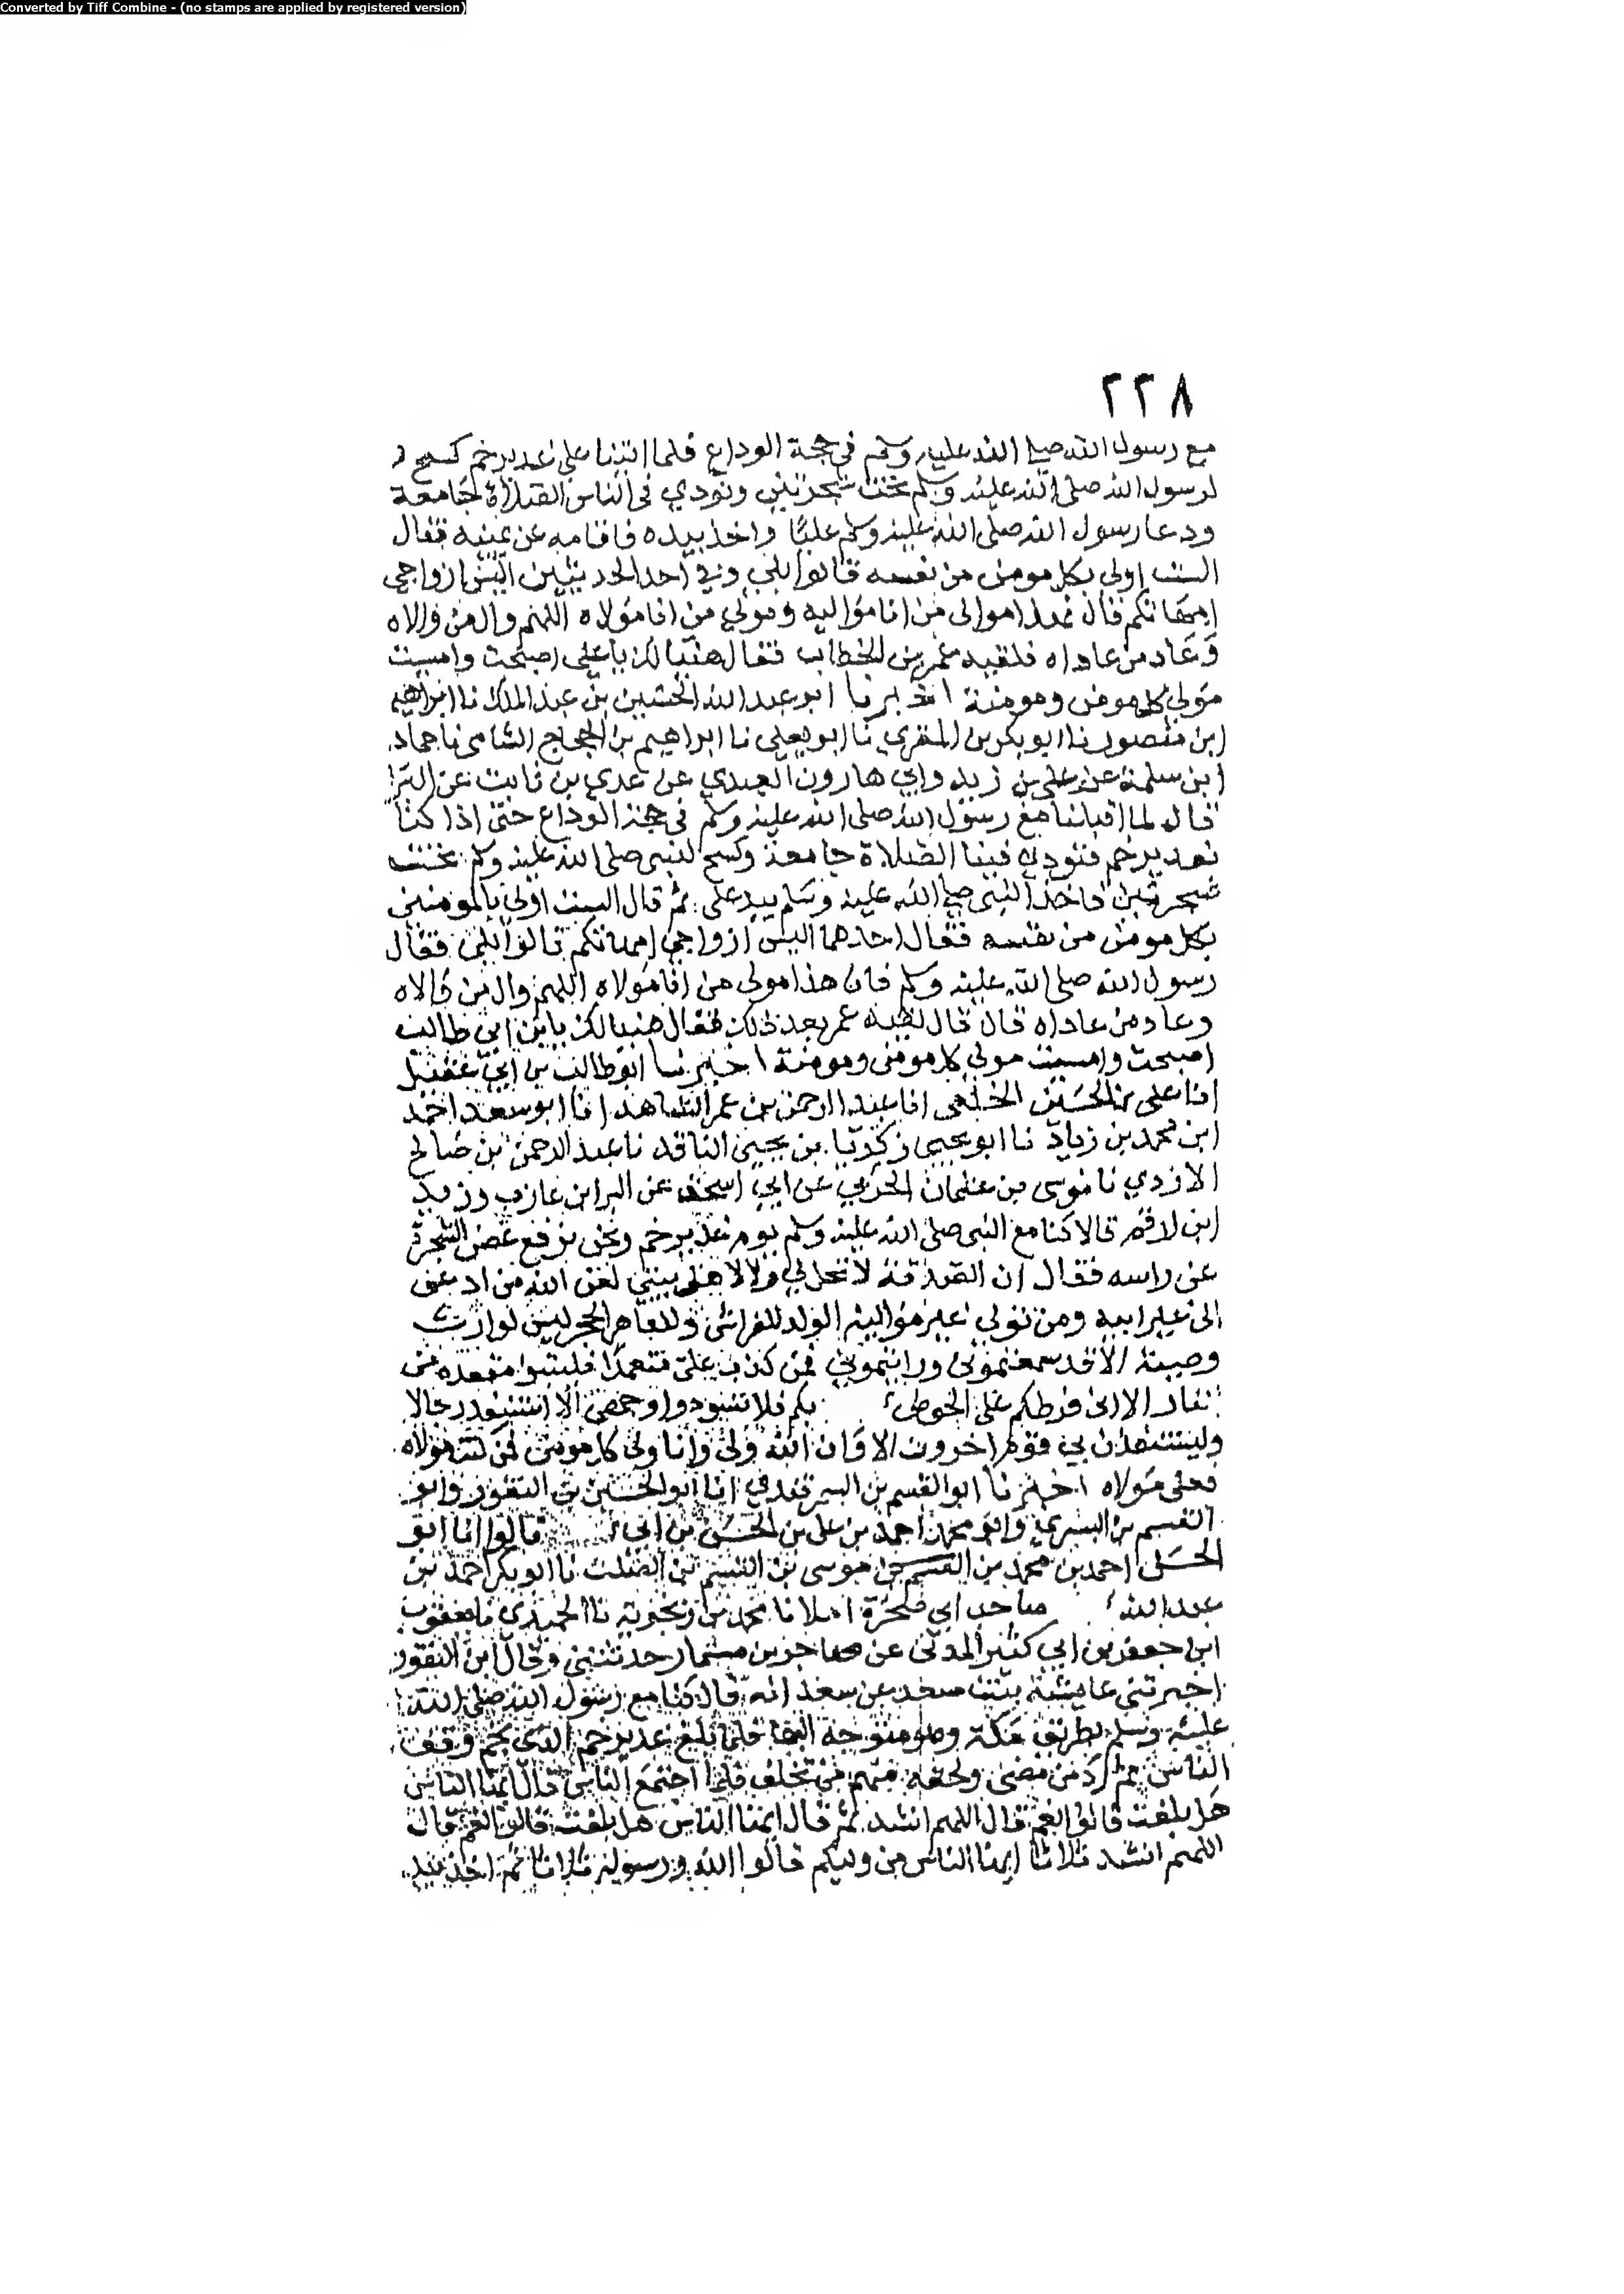 Converted by Tiff Combine - (no stamps are applied by registered version)
٢٢٨
مع رسول الله صلى الله عليه وسلم في حجة الوداع فلما اتينا على غدير خم كسح
لرسول الله صلى الله عليه وسلم تحت شجرتين ونودي في الناس الصلاة جامعة
ودعا رسول الله صلى الله عليه وسلم عليا واخذ بيده فاقامه عن يمينه فقال
الست اولى بكل مومن من نفسه قالوا بلى وفي احد الحديثين اليس ازواجي
امهاتكم فقال هذا موالي من انا مواليه ومولى من انا مولاه اللهم وال من والاه
وعاد من عاداه فلقيه عمر بن الخطاب فقال هنيا لك يا علي اصبحت وامسيت
مولى كل مومن ومومنة اخبرنا ابو عبد الله الحسين بن عبد الملك نا ابراهيم
ابن منصور نا ابو بكر بن المقري نا ابو يعلى نا ابراهيم بن الحجاج الشامي نا حماد
ابن سلمة عن علي بن زيد وابي هارون العبدي عن عدي بن ثابت عن البرا
قال لما اقبلنا مع رسول الله صلى الله عليه وسلم في حجة الوداع حتى اذا كنا
بغدير خم فنودي فينا الصلاة جامعة وكسح للنبي صلى الله عليه وسلم تحت
شجرتين فاخذ النبي صلى الله عليه وسلم بيد علي ثم قال الست اولى بالمومنين
بكل مومن من نفسه فقال احدهما اليس ازواجي امهاتكم قالوا بلى فقال
رسول الله صلى الله عليه وسلم فان هذا مولى من انا مولاه اللهم وال من والاه
وعاد من عاداه قال قال لقيه عمر بعد ذلك فقال هنيا لك يا بن ابي طالب
اصبحت وامسيت مولى كل مومن ومومنة اخبرنا ابو طالب بن ابي عقيل
انا علي بن الحسن الخلعي انا عبد الرحمن بن عمر الشاهد انا ابو سعد احمد
ابن محمد بن زياد نا ابو يحيى زكريا بن يحيى الناقد نا عبد الرحمن بن صالح
الازدي نا موسى بن عثمان الحربي عن ابي اسحق عن البرا بن عازب وزيد
ابن لارقم قالا كنا مع النبي صلى الله عليه وسلم يوم غدير خم ونحن نرفع غصن الشجرة
عن راسه فقال ان الصدقة لا تحل لي ولا لاهل بيتي لعن الله من ادعى
الى غير ابيه ومن تولى غير مواليه الولد للفراش وللعاهر الحجر ليس لوارث
وصية الا قد سمعتموني ورايتموني فمن كذب علي متعمدا فليتبوا مقعده من
النار الا اني فرطكم على الحوض بكم فلا تسودوا وجهي الا استنقذ رجالا
وليستنقذن بي قوم اخرون الا وان الله ولي وانا ولي كل مومن فمن كنت مولاه
فعلي مولاه اخبرنا ابو القسم بن السمرقندي انا ابو الحسين بن النقور وابو
القسم بن البسري وابو محمد احمد بن علي بن الحسن بن ابي قالوا انا ابو
الحسن احمد بن محمد بن القسم بن موسى بن القسم بن الصلت نا ابو بكر احمد بن
عبد الله صاحب ابي صخرة املا نا محمد بن زنجوية نا الحميدي نا يعقوب
ابن جعفر بن ابي كثير المدني عن مهاجر بن مسمار حدثتني وقال ابن النقور
اخبرتني عايشة بنت سعد عن سعد انه قال كنا مع رسول الله صلى الله
عليه وسلم بطريق مكة وهو متوجه اليها فلما بلغ غدير خم الذي بخم وقف
الناس ثم رد من مضى ولحقه منهم من تخلف فلما اجتمع الناس قال ايها الناس
هل بلغت قالوا نعم قال اللهم اشهد ثم قال ايها الناس هل بلغت قالوا نعم قال
اللهم اشهد ثلاثا ايها الناس من وليكم قالوا الله ورسوله ثلاثا ثم اخذ بيد